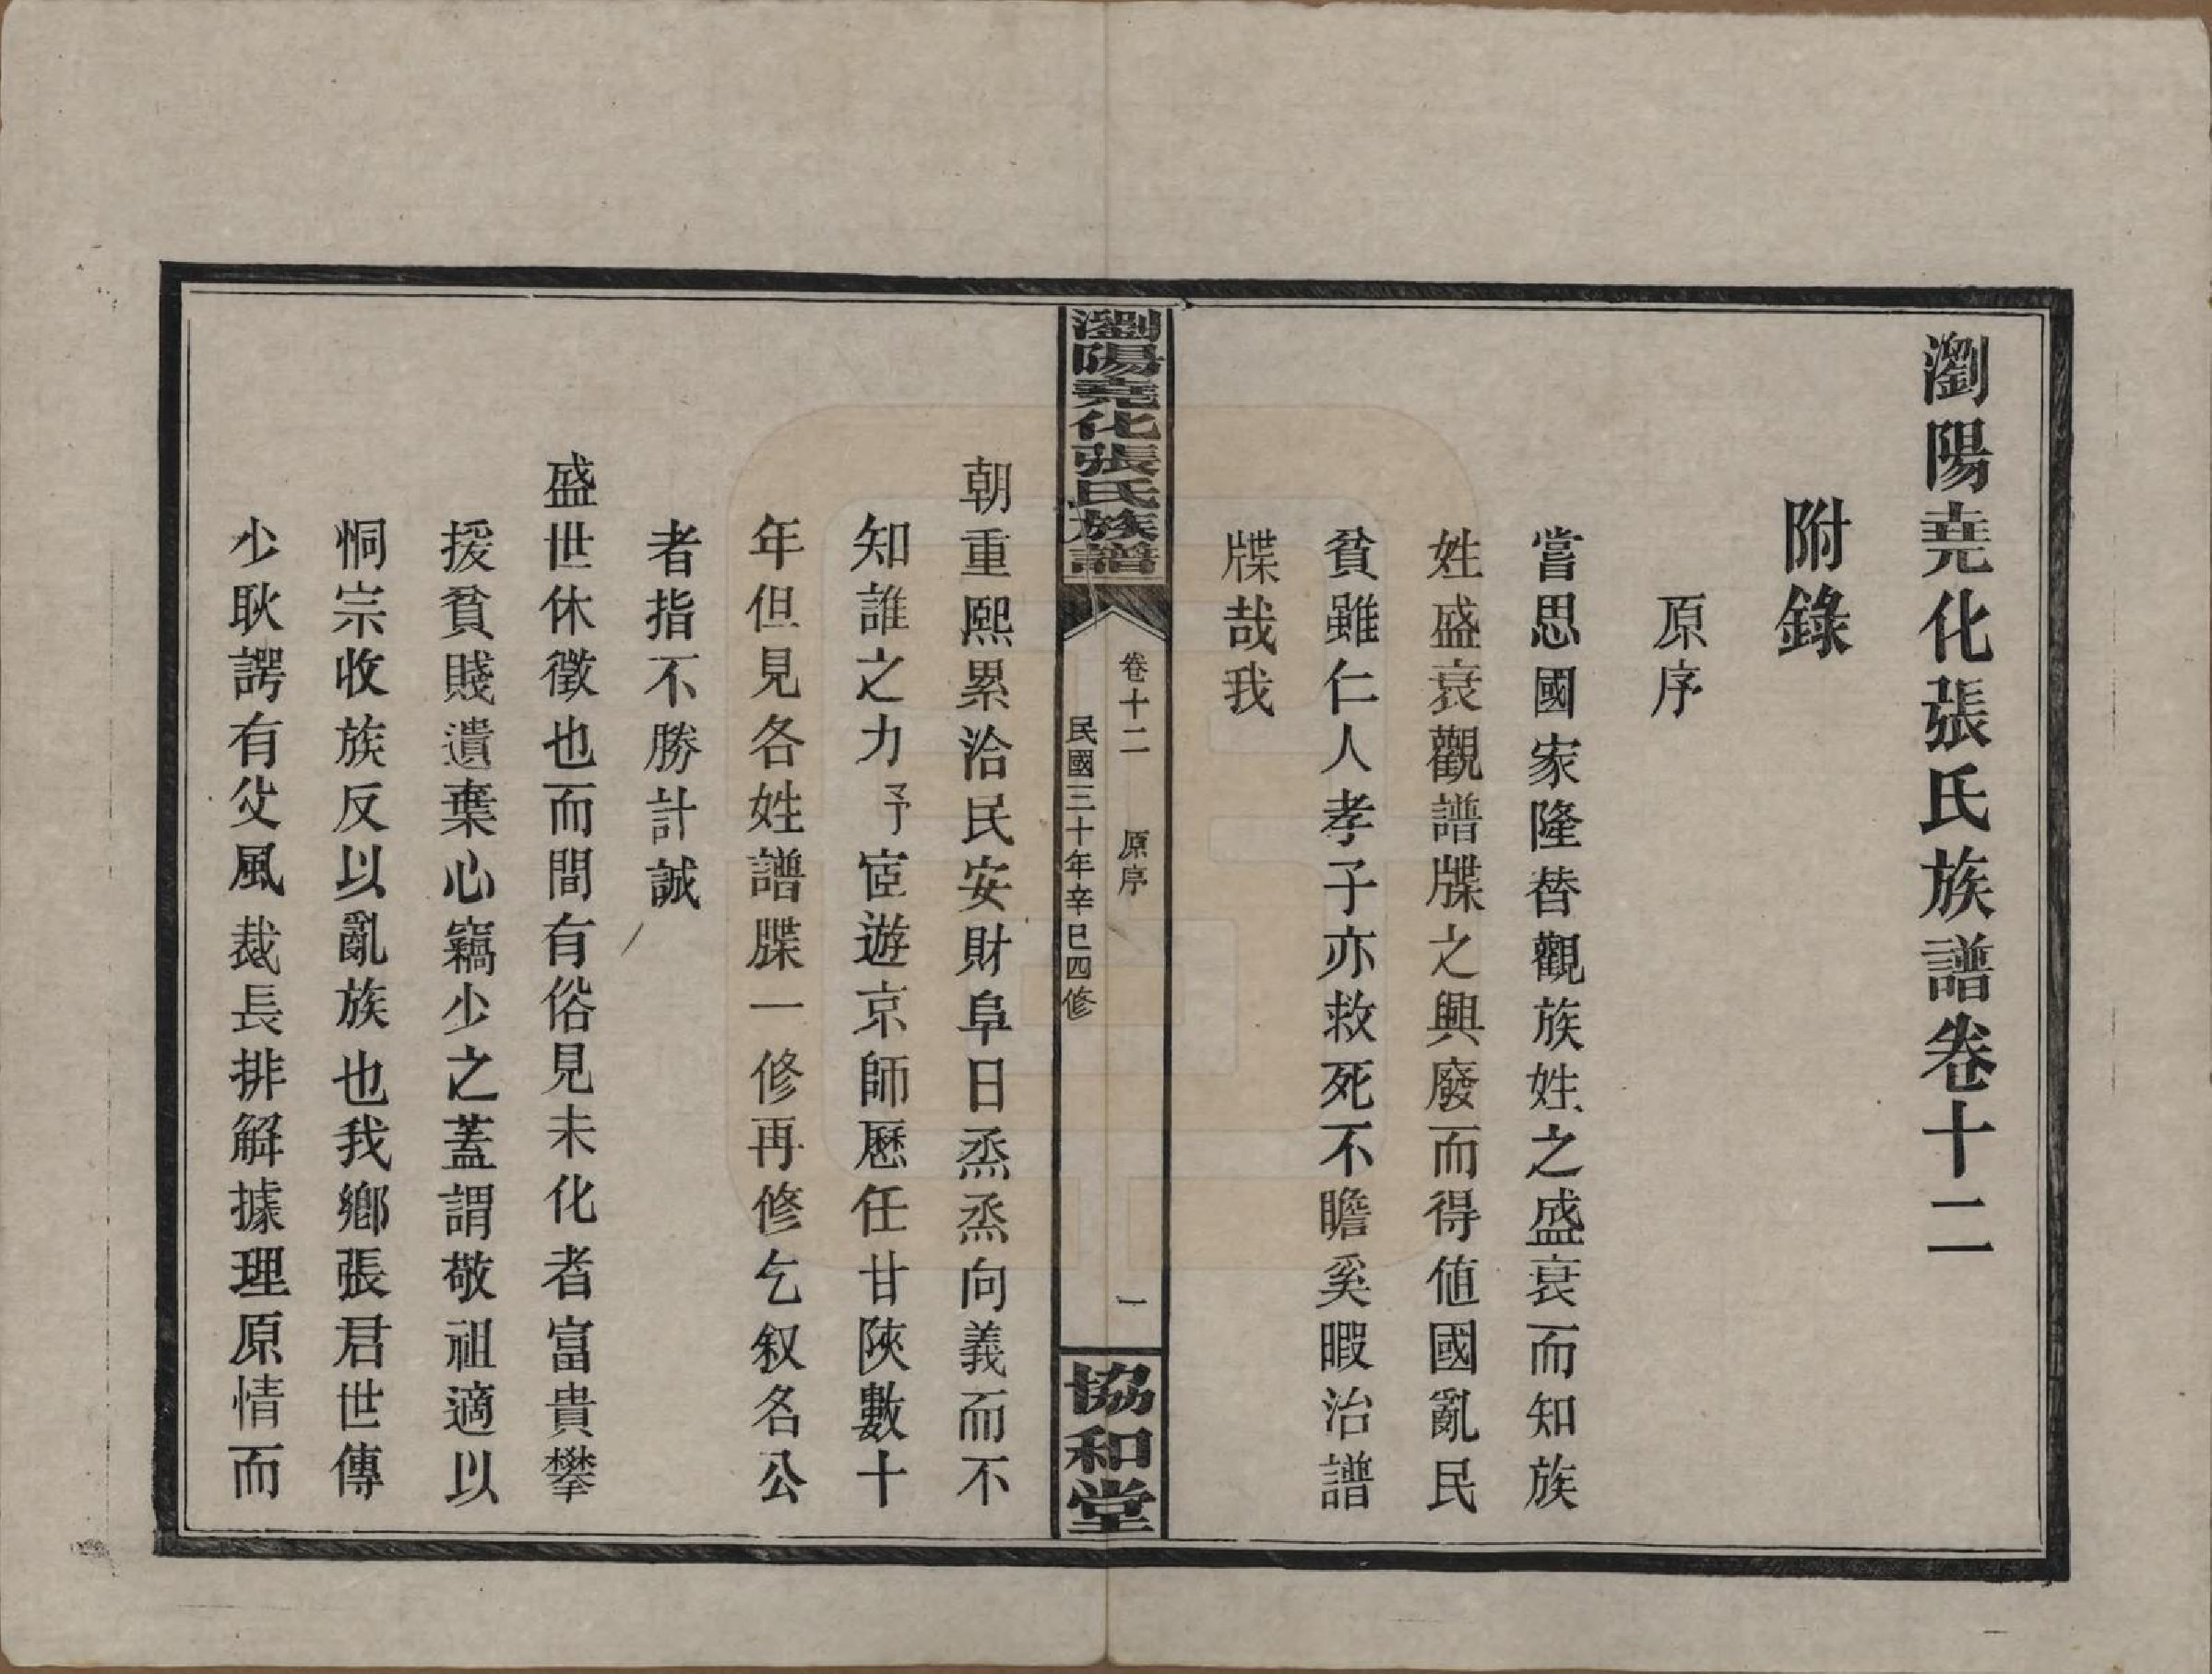 瀏陽堯化張氏族譜卷十二
附錄
原序
嘗思國家隆替觀族姓之盛衰而知族
姓盛衰觀譜牒之興廢而得值國亂民
貧雖仁人孝子亦救死不瞻奚暇治譜
牒哉我
瀏陽堯化張氏族譜
卷十二　原序
民國三十年辛巳四修
一
協和堂
朝重熙累洽民安財阜日烝烝向義而不
知誰之力予宦遊京師歷任甘陝數十
年但見各姓譜牒一修再修乞叙名公
者指不勝計誠
盛世休徵也而間有俗見未化者富貴攀
援貧賤遺棄心竊少之蓋謂敬祖適以
恫宗收族反以亂族也我鄉張君世傳
少耿諤有父風裁長排解據理原情而